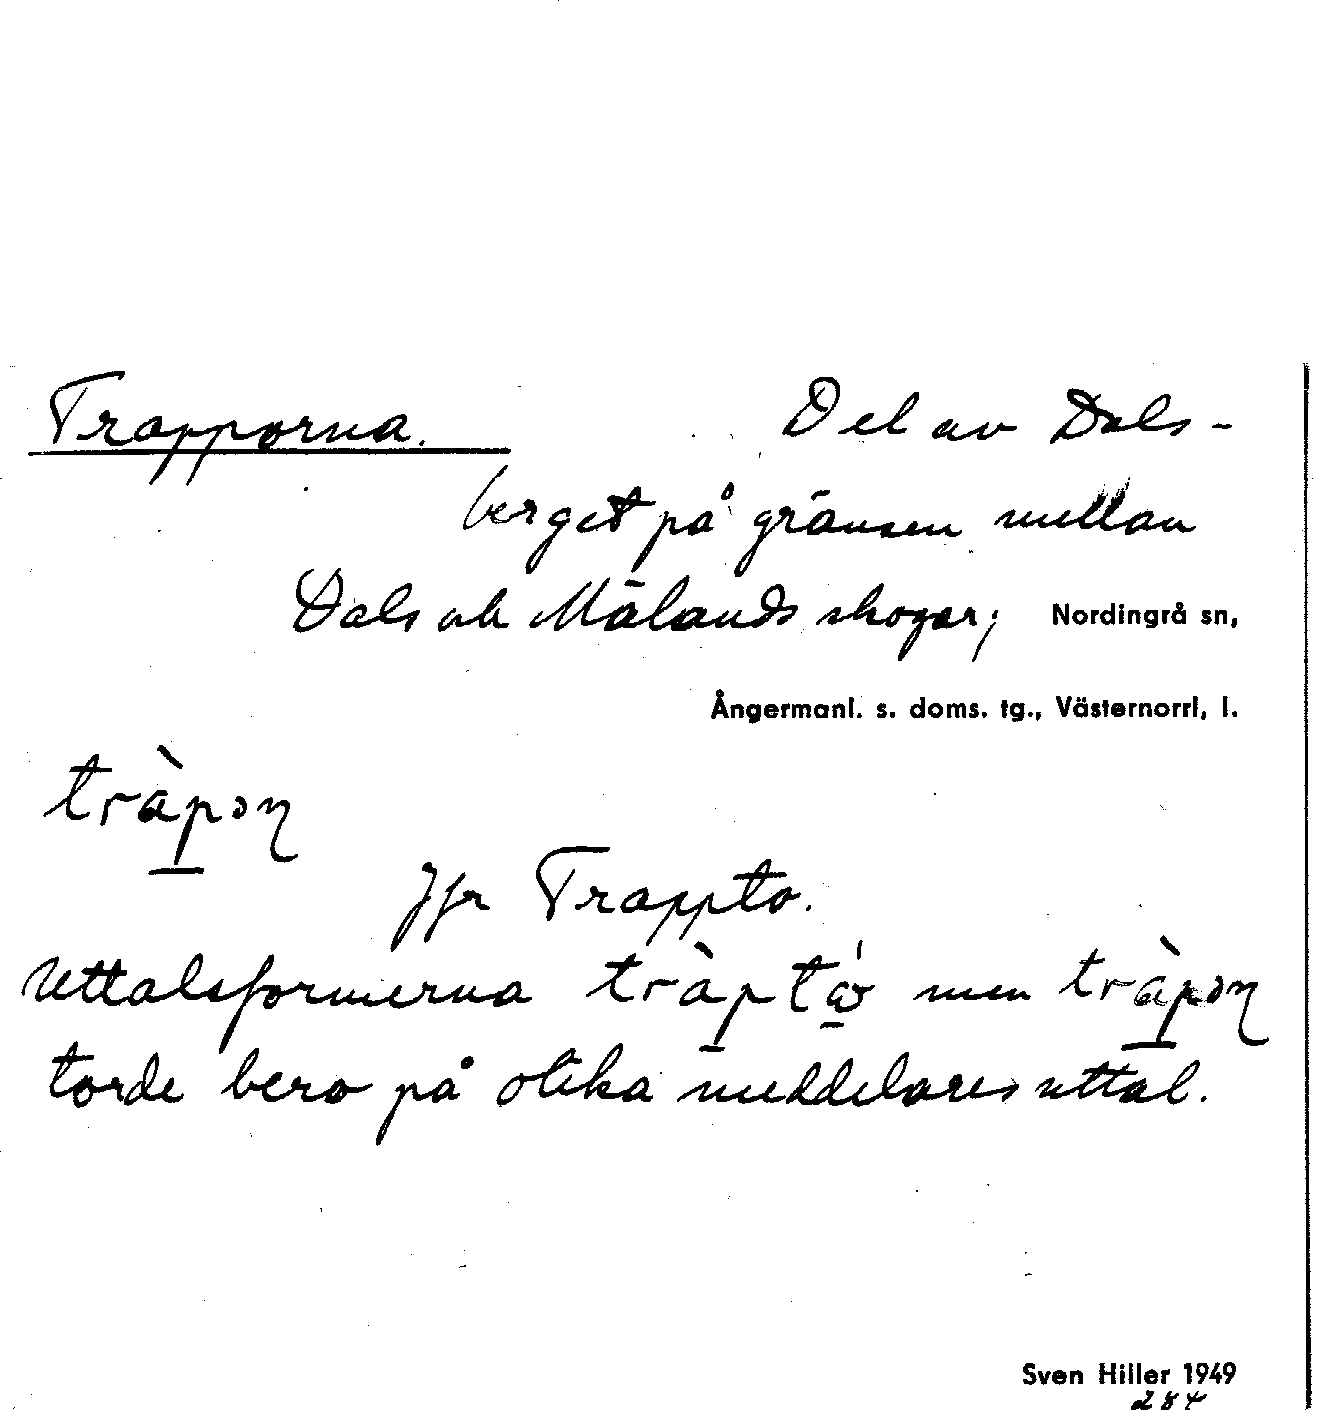 Trapporna. Del av Dals-
berget på gränsen mellan
Dals och Mälands skogar; Nordingrå sn,
Ångermanl. s. doms. tg., Västernorrl. l.
tràpoɳ
Jfr Trappto.
Uttalsformerna men tràpoɳ
torde bero på olika meddelares uttal.
Sven Hiller 1949
284